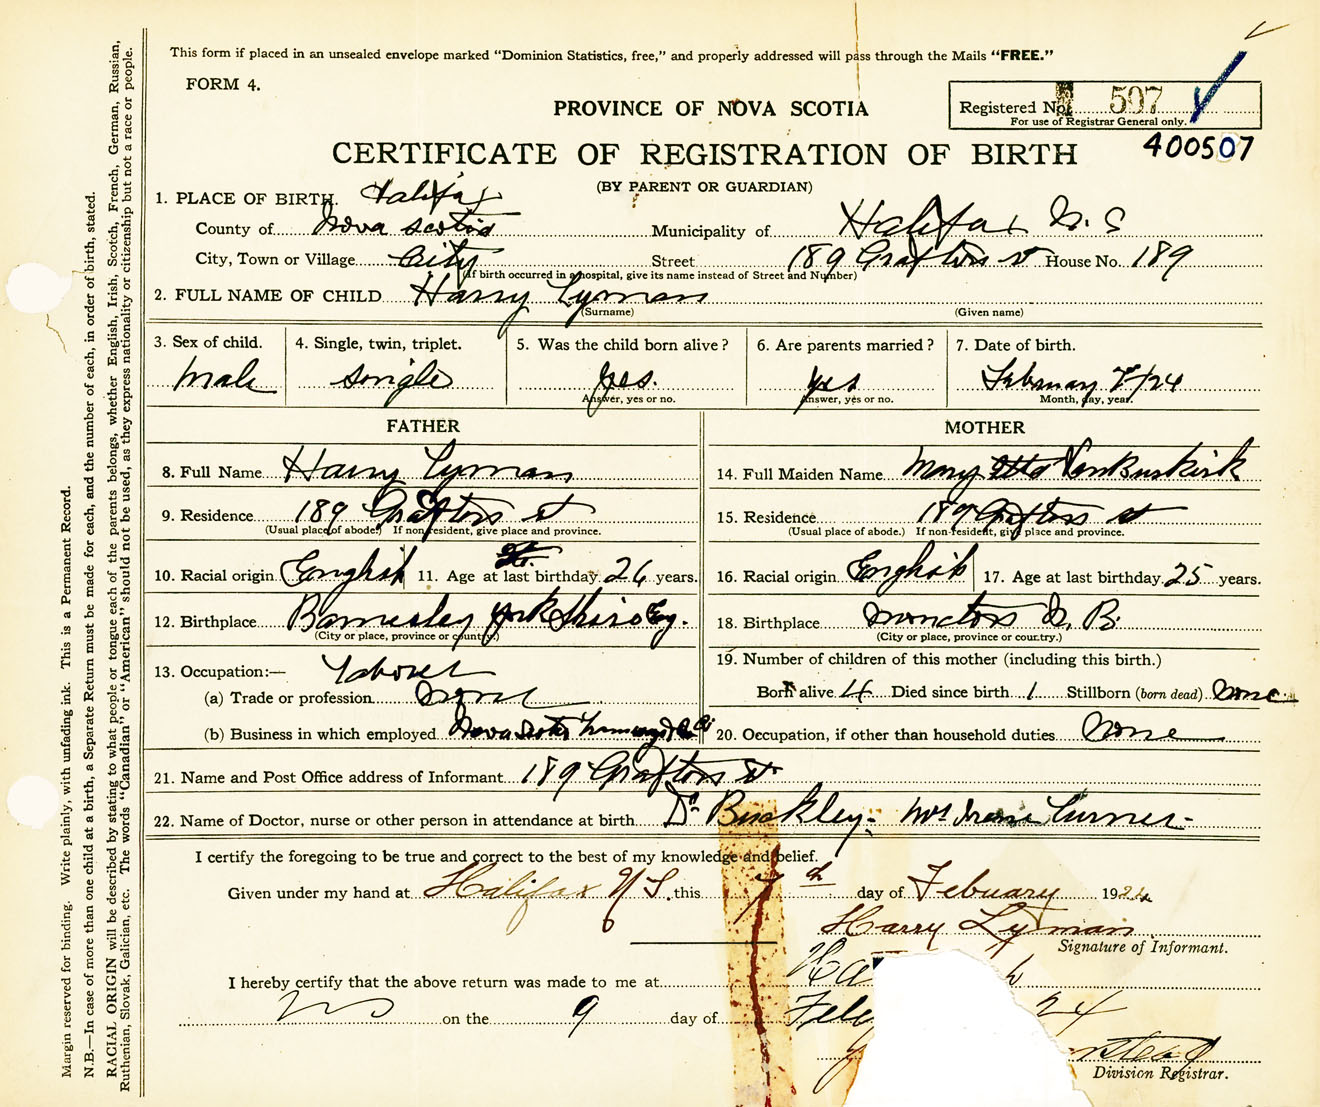 This form if placed in an unsealed envelope marked "Dominion Statistics, free," and properly addressed will pass through the Mails "FREE."
FORM 4.
PROVINCE OF NOVA SCOTIA
Registered No. 507
For use of Registrar General only.
400507
CERTIFICATE OF REGISTRATION OF BIRTH
(BY PARENT OR GUARDIAN)
1. PLACE OF BIRTH. Halifax
County of Nova Scotia Municipality of Halifax N. S
City, Town or Village City Street 189 Grafton st House No. 189
(If birth occurred in a hospital, give its name instead of Street and Number)
2. FULL NAME OF CHILD Harry Lyman
(Surname) (Given name)
3. Sex of child. 4. Single, twin, triplet. 5. Was the child born alive? 6. Are parents married? 7. Date of birth.
Male single yes. yes February 7/24
Answer, yes or no. Answer, yes or no. Month, day, year.
FATHER MOTHER
8. Full Name Harry Lyman 14. Full Maiden Name Mary Etta VanBuskirk
9. Residence 189 Grafton st 15. Residence 189 Grafton st
(Usual place of abode.) If non-resident, give place and province. (Usual place of abode.) If non-resident, give place and province.
10. Racial origin English 11. Age at last birthday 26 years. 16. Racial origin English 17. Age at last birthday 25 years.
12. Birthplace Barnesley YorkShire Eng. 18. Birthplace Moncton N. B.
(City or place, province or country.) (City or place, province or country.)
13. Occupation:— Laborer 19. Number of children of this mother (including this birth.)
(a) Trade or profession None Born alive 4 Died since birth 1 Stillborn (born dead) None
(b) Business in which employed Nova Scotia 20. Occupation, if other than household duties None
21. Name and Post Office address of Informant 189 Grafton st
22. Name of Doctor, nurse or other person in attendance at birth Dr Buckley. Mrs Turner.
I certify the foregoing to be true and correct to the best of my knowledge and belief.
Given under my hand at Halifax N S. this 7 th day of Febuary 1924
Harry Lyman
Signature of Informant.
I hereby certify that the above return was made to me at
NS on the 9 day of Feb 24
Division Registrar.
Margin reserved for binding. Write plainly, with unfading ink. This is a Permanent Record.
N.B.—In case of more than one child at a birth, a Separate Return must be made for each, and the number of each, in order of birth, stated.
RACIAL ORIGIN will be described by stating to what people or tongue each of the parents belongs, whether English, Irish, Scotch, French, German, Russian,
Ruthenian, Slovak, Galician, etc. The words "Canadian" or "American" should not be used, as they express nationality or citizenship but not a race or people.